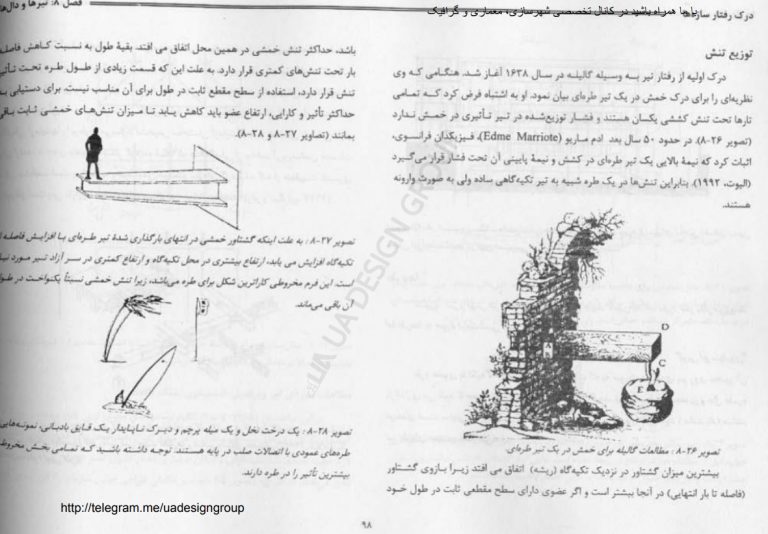 با ما همراه باشید در کانال تخصصی شهرسازی، معماری و گرافیک
درک رفتار سازه‌ها
توزیع تنش
درک اولیه از رفتار تیر به وسیله گالیله در سال ۱۶۳۸ آغاز شد. هنگامی که وی
نظریه‌ای را برای درک خمش در یک تیر طره‌ای بیان نمود. او به اشتباه فرض کرد که تمامی
تارها تحت تنش کششی یکسان هستند و فشار توزیع‌شده در تیر تأثیری در خمش ندارد
(تصویر ۲۶-۸). در حدود ۵۰ سال بعد ادم ماریو (Edme Marriote)، فیزیکدان فرانسوی،
اثبات کرد که نیمهٔ بالایی یک تیر طره‌ای در کشش و نیمهٔ پایینی آن تحت فشار قرار می‌گیرد
(الیوت، ۱۹۹۲). بنابراین تنش‌ها در یک طره شبیه به تیر تکیه‌گاهی ساده ولی به صورت وارونه
هستند.
D
C
E
تصویر ۲۶-۸ : مطالعات گالیله برای خمش در یک تیر طره‌ای
بیشترین میزان گشتاور در نزدیک تکیه‌گاه (ریشه) اتفاق می افتد زیرا بازوی گشتاور
(فاصله تا بار انتهایی) در آنجا بیشتر است و اگر عضوی دارای سطح مقطعی ثابت در طول خود
فصل ۸: تیرها و دال‌ها
باشد، حداکثر تنش خمشی در همین محل اتفاق می افتد. بقیهٔ طول به نسبت کاهش فاصله
بار تحت تنش‌های کمتری قرار دارد. به علت این که قسمت زیادی از طول طره تحت تأثیر
تنش قرار دارد، استفاده از سطح مقطع ثابت در طول برای آن مناسب نیست. برای دستیابی به
حداکثر تأثیر و کارایی، ارتفاع عضو باید کاهش یابد تا میزان تنش‌های خمشی ثابت باقی
بمانند (تصاویر ۲۷-۸ و ۲۸-۸).
تصویر ۲۷-۸ : به علت اینکه گشتاور خمشی در انتهای بارگذاری شدهٔ تیر طره‌ای با افزایش فاصله از
تکیه‌گاه افزایش می یابد، ارتفاع بیشتری در محل تکیه‌گاه و ارتفاع کمتری در سر آزاد تیر مورد نیاز
است. این فرم مخروطی کاراترین شکل برای طره می‌باشد، زیرا تنش خمشی نسبتاً یکنواخت در طول
آن باقی می‌ماند.
تصویر ۲۸-۸ : یک درخت نخل و یک میله پرچم و دیرک ناپایدار یک قایق بادبانی، نمونه‌هایی
طره‌های عمودی با اتصالات صلب در پایه هستند. توجه داشته باشید که تمامی بخش مخروطی
بیشترین تأثیر را در طره دارند.
http://telegram.me/uadesigngroup
۹۸
UA DESIGN GROUP